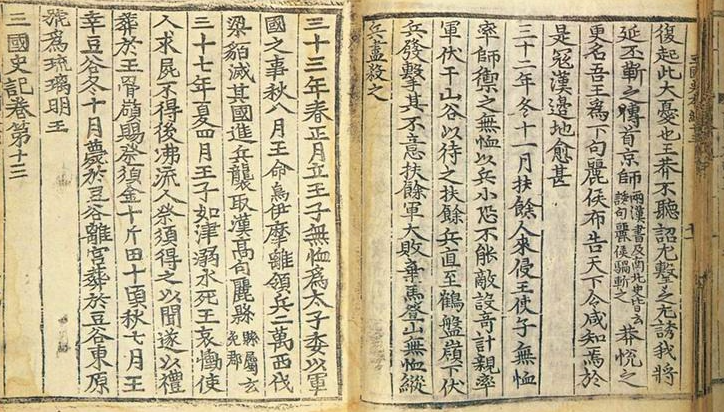 復起此大憂也王莽不聽詔尤擊之尤誘我將
延丕斬之傳首京師兩漢書及南北史皆云誘句麗侯騶斬之莽悅之
更名吾王爲下句麗侯布告天下令咸知焉於
是寇漢邊地愈甚
三十二年冬十一月扶餘人來侵王使子無恤
率師禦之無恤以兵小恐不能敵設奇計親率
軍伏于山谷以待之扶餘兵直至鶴盤嶺下伏
兵發擊其不意扶餘軍大敗棄馬登山無恤縱
兵盡殺之
三十三年春正月立王子無恤爲太子委以軍
國之事秋八月王命烏伊摩離領兵二萬西伐
梁貊滅其國進兵襲取漢高句麗縣縣屬玄免郡
三十七年夏四月王子如津溺水死王哀慟使
人求屍不得後沸流人祭須得之以聞遂以禮
葬於王骨嶺賜祭須金十斤田十頃秋七月王
幸豆谷冬十月薨於豆谷離宮葬於豆谷東原
號爲琉璃明王
三國史記卷第十三